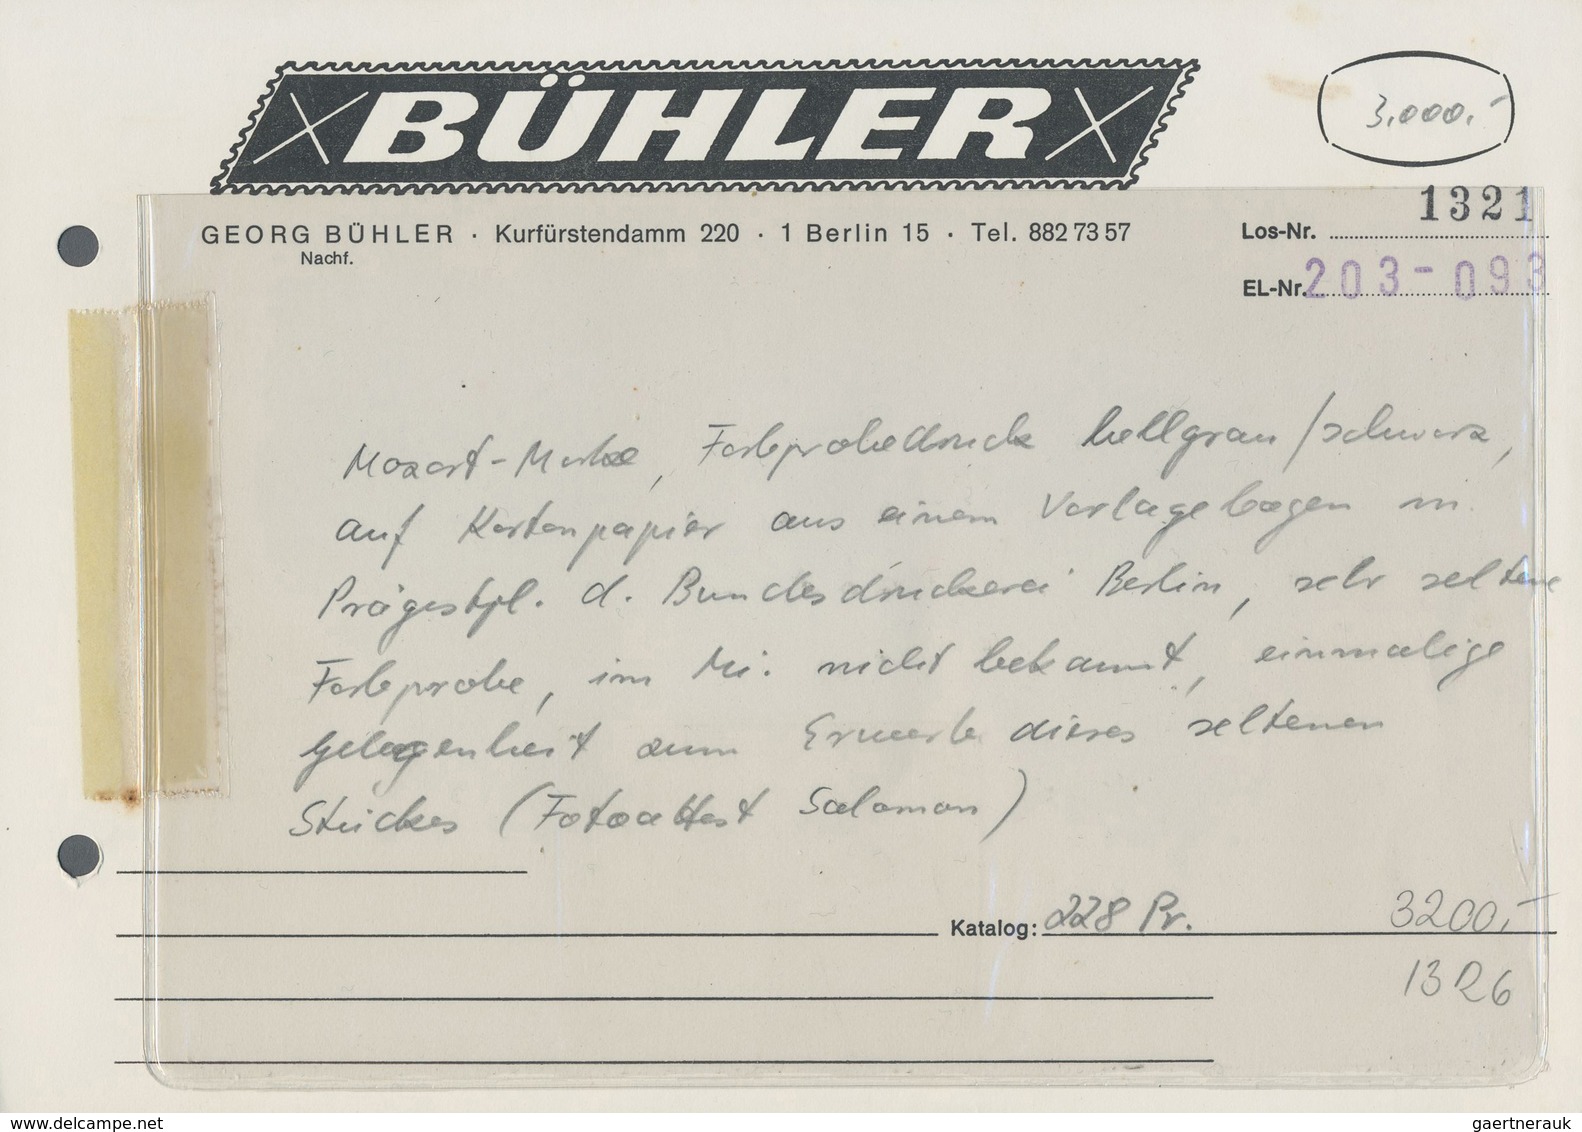 BÜHLER
3.000,-
1321
GEORG BÜHLER · Kurfürstendamm 220 · 1 Berlin 15 · Tel. 882 73 57
Nachf.
Los-Nr.
EL-Nr. 203-093
Mozart-Marke, Farbprobedruck hellgrau/schwarz,
auf Kartonpapier aus einem Vorlagebogen m.
Prägestpl. d. Bundesdruckerei Berlin, sehr seltene
Farbprobe, im Mi. nicht bekannt, einmalige
Gelegenheit zum Erwerb dieses seltenen
Stückes (Fotoattest Salomon)
Katalog: 228 Pr. 3200,-
13R6
www.delcampe.net
gaertnerauk